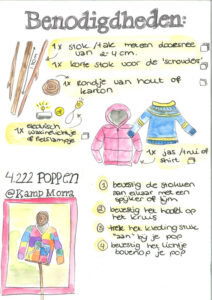 Benodigdheden:
1x stok/tak met een doorsnee
van 2-4 cm.
1x korte stok voor de 'schouders'
1x rondje van hout of
karton
1x electrisch
waxinelichtje
of fietslampje
1x jas/trui of
shirt
4.222 POPPEN
@Kamp Morra
1 bevestig de stokken
aan elkaar met een
spijker of lijm
2 bevestig het hoofd op
het kruis
3 trek het kledingstuk
"aan" bij je pop
4 bevestig het lichtje
bovenop je pop